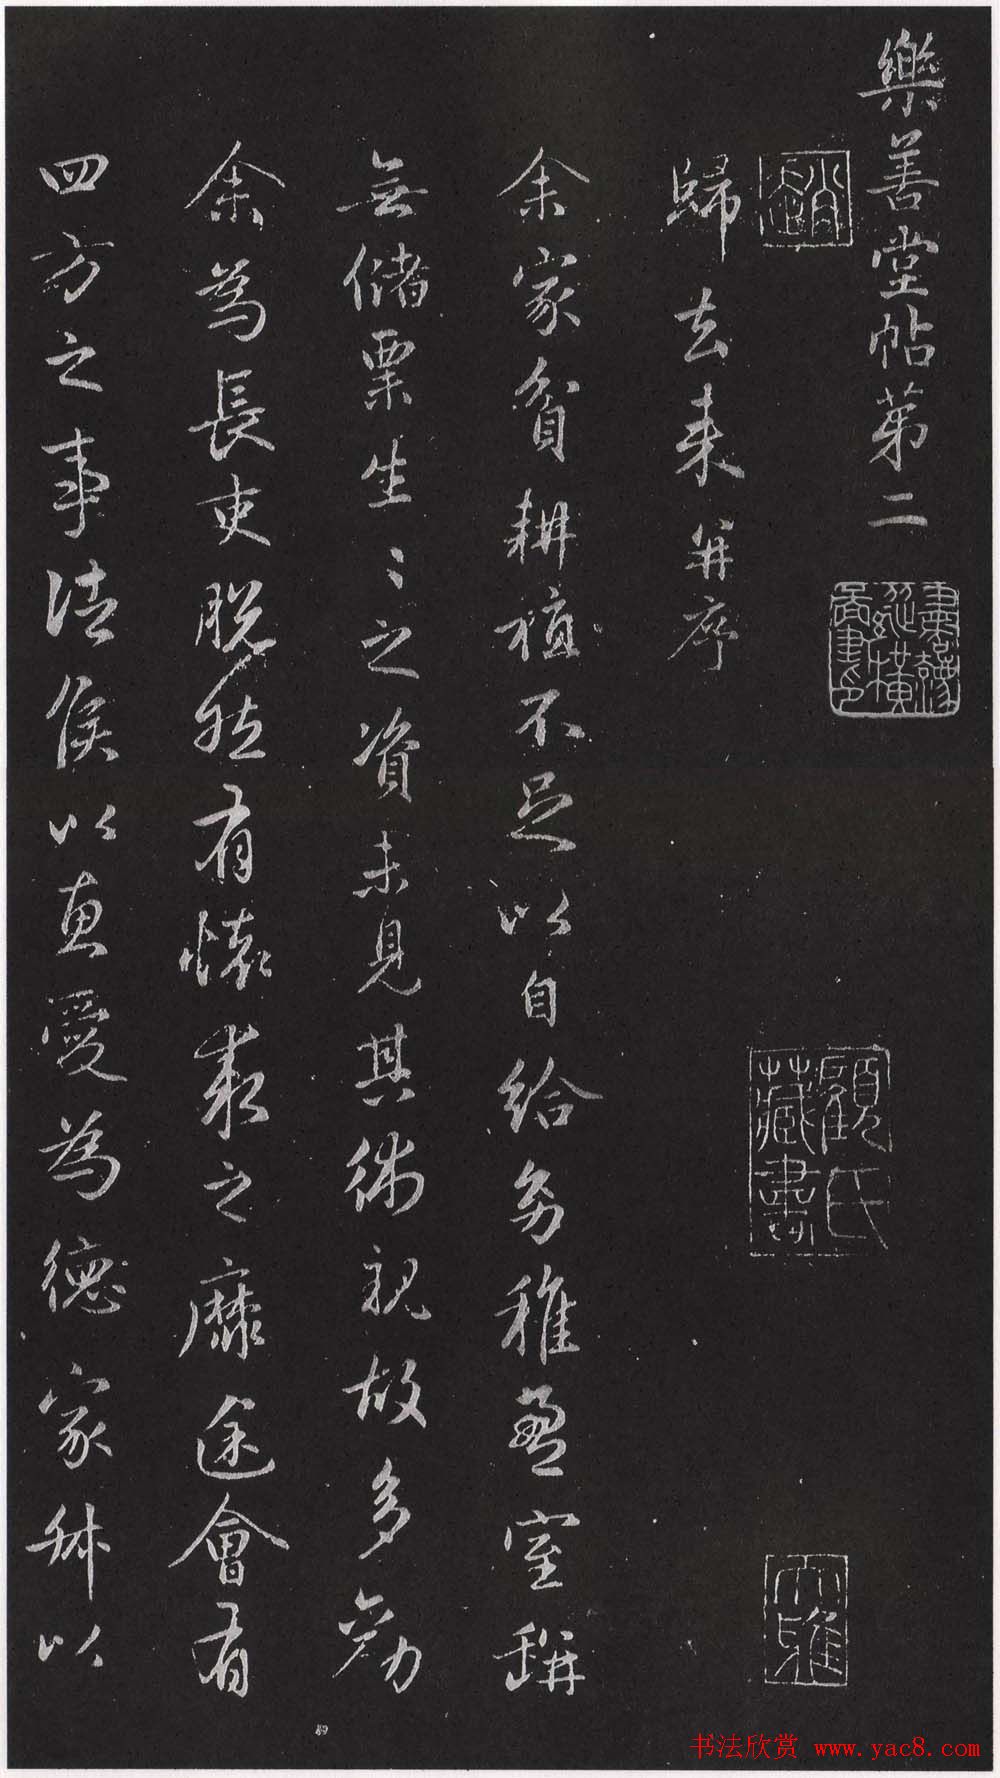 樂善堂帖苐二
歸去来并序
顧氏藏書
大雅
余家貧耕植不足以自給幼稚盈室缾
無儲粟生〻之資未見其術親故多勸
余為長吏脫然有懷求之靡途會有
四方之事諸侯以惠愛為德家叔以
书法欣赏 www.yac8.com